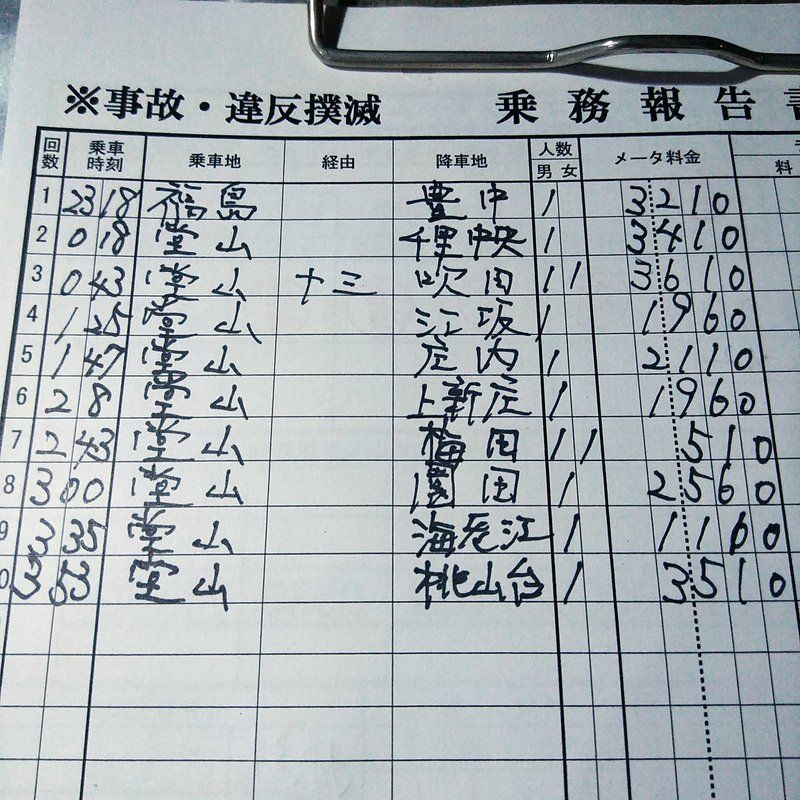 ※事故・違反撲滅 乗務報告書
回数 乗車時刻 乗車地 経由 降車地 人数 男 女 メータ料金 料
1 23 18 福島 豊中 1 3210
2 0 18 堂山 千里中央 1 3410
3 0 43 堂山 十三 吹田 1 1 3610
4 1 25 堂山 江坂 1 1960
5 1 47 堂山 庄内 1 2110
6 2 8 堂山 上新庄 1 1960
7 2 43 堂山 梅田 1 1 510
8 3 00 堂山 園田 1 2560
9 3 35 堂山 海老江 1 1160
0 3 53 堂山 桃山台 1 3510